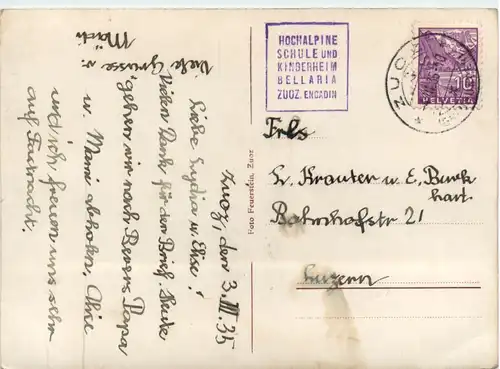 Zuoz, den 3. III. 35
Liebe Lydia u. Elise!
Vielen Dank für den Brief. Heute
gehen wir nach Bevers Papa
u. Mami abholen.
und ich freuen uns sehr
auf Fastnacht.
Viele Grüsse v.
HOCHALPINE
SCHULE UND
KINDERHEIM
BELLARIA
ZUOZ. ENGADIN
ZUOZ
10
HELVETIA
Foto Feuerstein, Zuoz
Frls
L. Krauter u. E. Burk
hart.
Bahnhofstr 21
Luzern